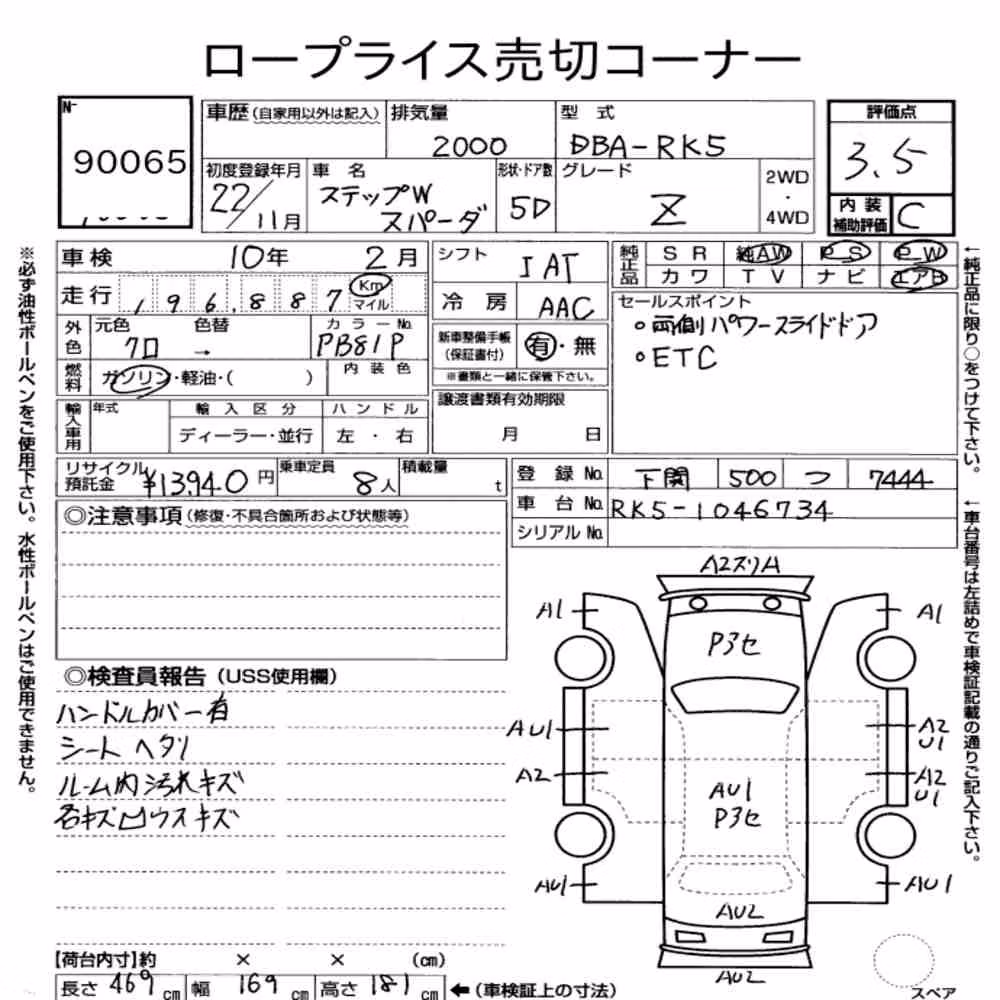 ロープライス売切コーナー
N-
90065
車歴(自家用以外は記入)
排気量
2000
型 式
DBA-RK5
評価点
3.5
初度登録年月
22/11月
車 名
ステップW
スパーダ
形状・ドア数
5D
グレード
Z
2WD
・
4WD
内 装
補助評価
C
車検 10年 2月
シフト
IAT
純正品
S R 純AW P_S P_W
カワ TV ナビ エアB
走行 196,887 Km
マイル
冷 房
AAC
セールスポイント
○両側パワースライドドア
○ETC
外色
元色 色替
クロ →
カラーNo.
PB81P
新車整備手帳
(保証書付)
有・無
※書類と一緒に保管下さい。
燃料
ガソリン・軽油・( )
内 装 色
輸入車用
年式
輸 入 区 分
ハ ン ド ル
ディーラー・並行
左 ・ 右
譲渡書類有効期限
月 日
リサイクル
預託金
¥13940円
乗車定員
8人
積載量
t
登 録 No. 下関 500 つ 7444
車 台 No. RK5-1046734
シリアル No.
◎注意事項(修復・不具合箇所および状態等)
◎検査員報告(USS使用欄)
ハンドルカバー有
シートヘタリ
ルーム内汚れキズ
各キズ凹ウスキズ
A2スリA
A1
A1
P3セ
AU1
A2
U1
A2
A2
U1
AU1
P3セ
AU1
AU1
AU2
AU2
【荷台内寸】約 × × (cm)
長さ 469cm 幅 169cm 高さ 181cm ←(車検証上の寸法)
スペア
※必ず油性ボールペンをご使用下さい。水性ボールペンはご使用できません。
←純正品に限り○をつけて下さい。
←車台番号は左詰めで車検証記載の通りご記入下さい。